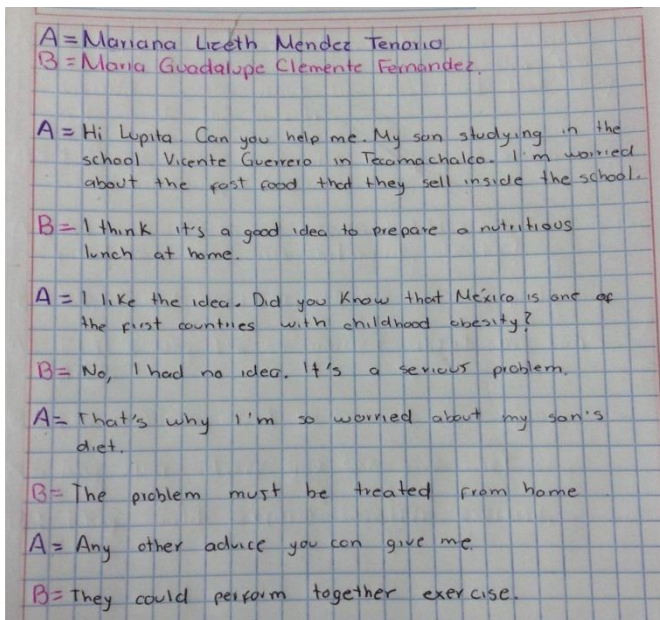 A = Mariana Lizeth Mendez Tenorio
B = Maria Guadalupe Clemente Fernandez.
A = Hi Lupita Can you help me. My son studying in the
school Vicente Guerrero in Tecamachalco. I'm worried
about the fast food that they sell inside the school.
B = I think it's a good idea to prepare a nutritious
lunch at home.
A = I like the idea. Did you know that México is one of
the first countries with childhood obesity?
B = No, I had no idea. It's a serious problem.
A = That's why I'm so worried about my son's
diet.
B = The problem must be treated from home
A = Any other advice you can give me.
B = They could perform together exercise.